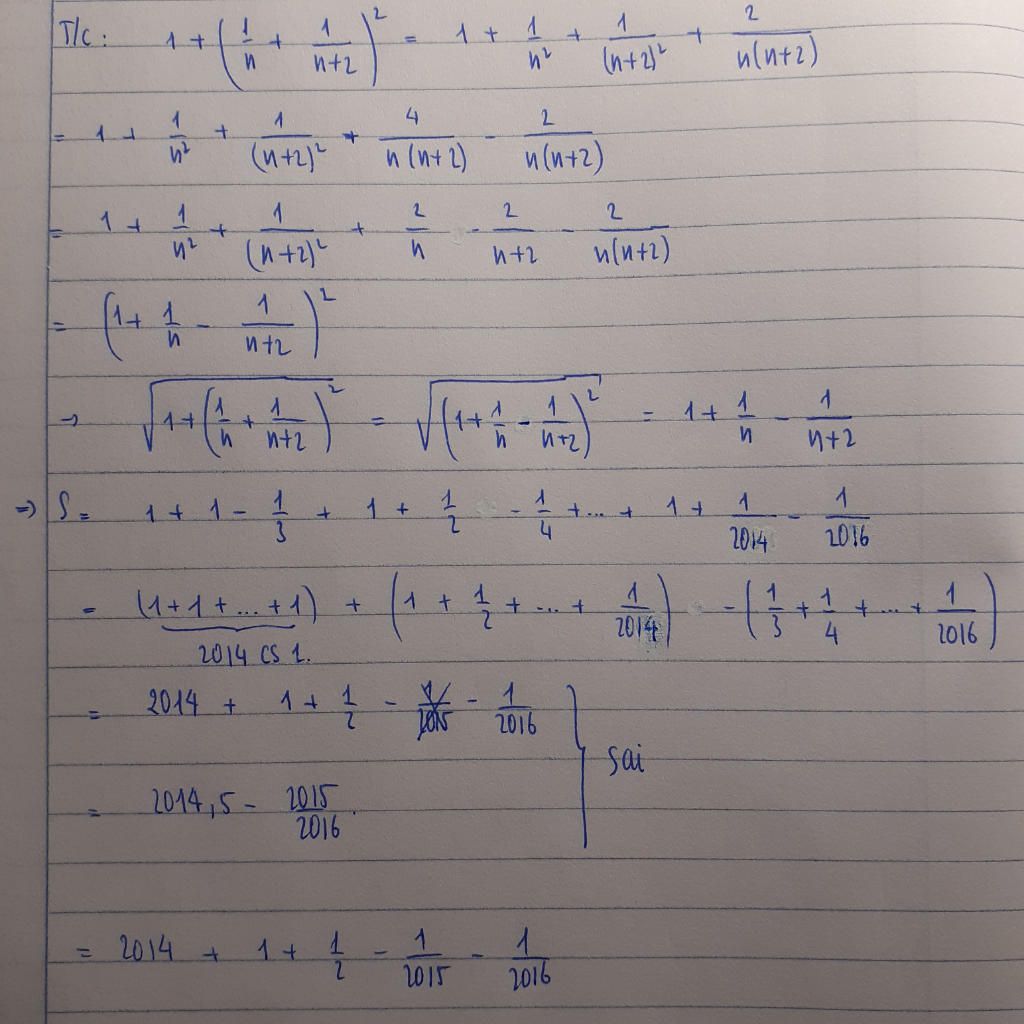 T/c: 1 + (1/n + 1/(n+2))² = 1 + 1/n² + 1/(n+2)² + 2/(n(n+2))
= 1 + 1/n² + 1/(n+2)² + 4/(n(n+2)) - 2/(n(n+2))
= 1 + 1/n² + 1/(n+2)² + 2/n - 2/(n+2) - 2/(n(n+2))
= (1 + 1/n - 1/(n+2))²
→ √(1 + (1/n + 1/(n+2))²) = √((1 + 1/n - 1/(n+2))²) = 1 + 1/n - 1/(n+2)
⇒ S = 1 + 1 - 1/3 + 1 + 1/2 - 1/4 + ... + 1 + 1/2014 - 1/2016
= (1 + 1 + ... + 1) + (1 + 1/2 + ... + 1/2014) - (1/3 + 1/4 + ... + 1/2016)
2014 cs 1.
= 2014 + 1 + 1/2 - 1/2015 - 1/2016
sai
= 2014,5 - 2015/2016.
= 2014 + 1 + 1/2 - 1/2015 - 1/2016